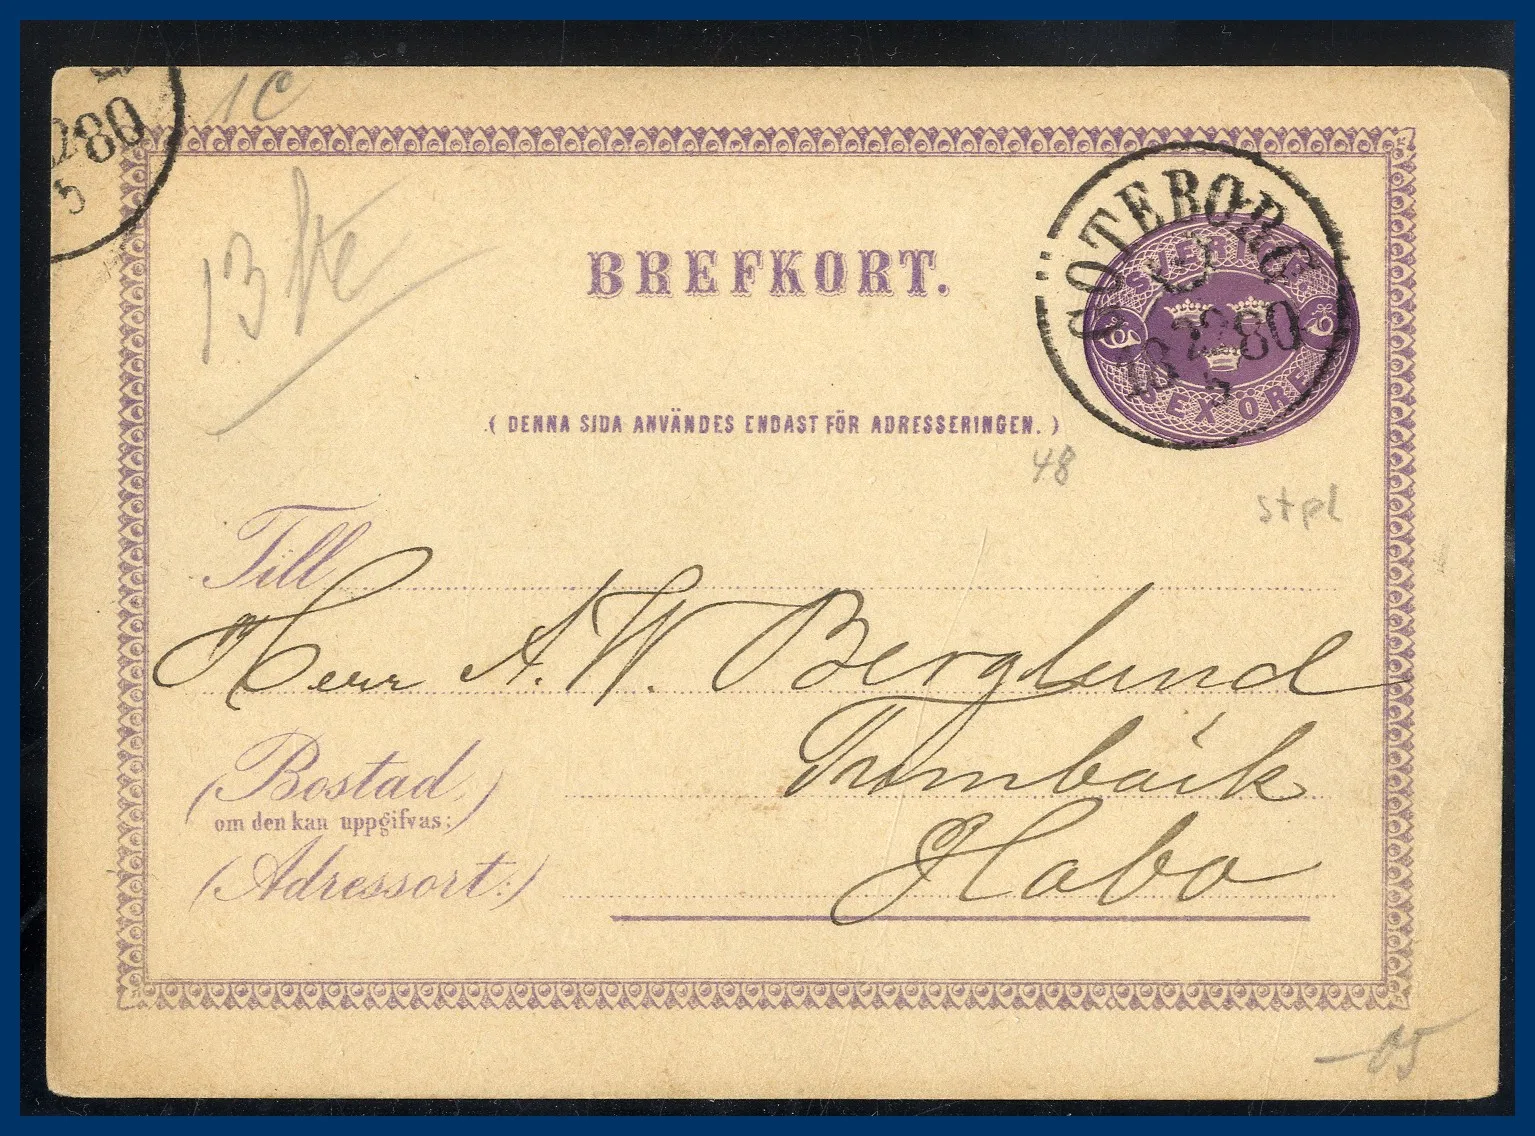 1C
2280
5
13
BREFKORT.
GÖTEBORG
18 22 80
5
SVERIGE
SEX ÖRE
( DENNA SIDA ANVÄNDES ENDAST FÖR ADRESSERINGEN. )
48
stpl
Till
Herr A. W. Berglund
(Bostad
om den kan uppgifvas:)
Habo
(Adressort:)
-05